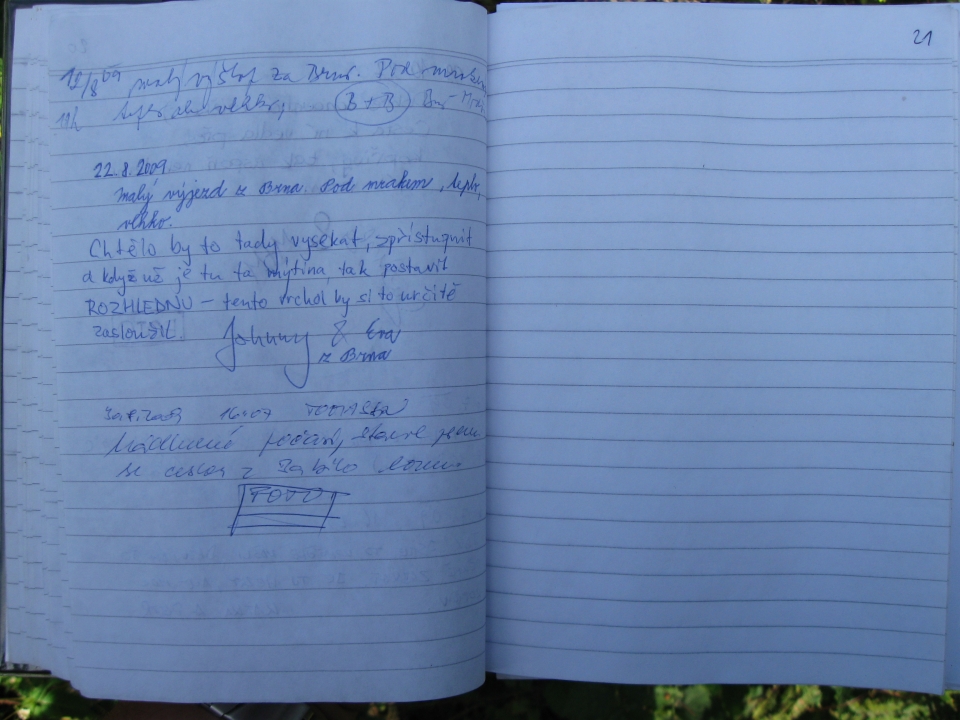 21
12/8 09 malý výšlap za Brna. Pod mrakem
11h teplo ale vlhko, B+B Brno-
22.8.2009
Malý výjezd z Brna. Pod mrakem, teplo,
vlhko.
Chtělo by to tady vysekat, zpřístupnit
a když už je tu ta mýtina, tak postavit
ROZHLEDNU – tento vrchol by si to určitě
zasloužil
Johnny & Eva
z Brna
16:07
Nádherné počasí,
se cestou z
TOTO